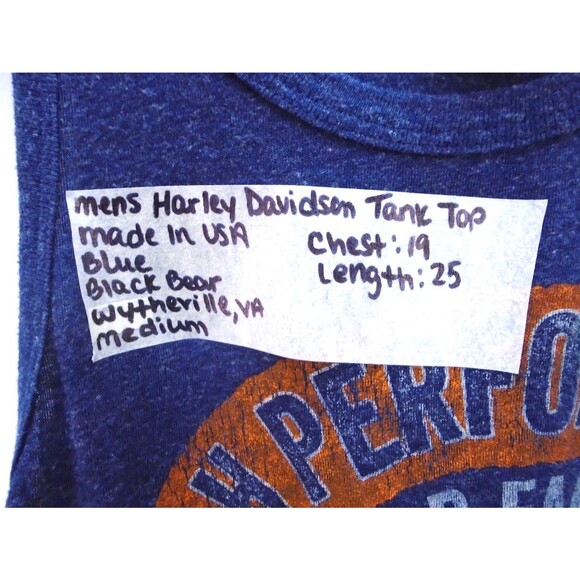 mens Harley Davidson Tank Top
made In USA
Blue
Black Bear
Wytheville, VA
medium
Chest: 19
Length: 25
H PERFO